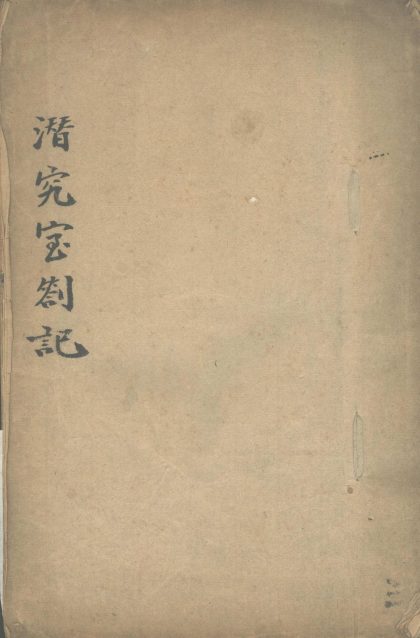 潜究室劄記